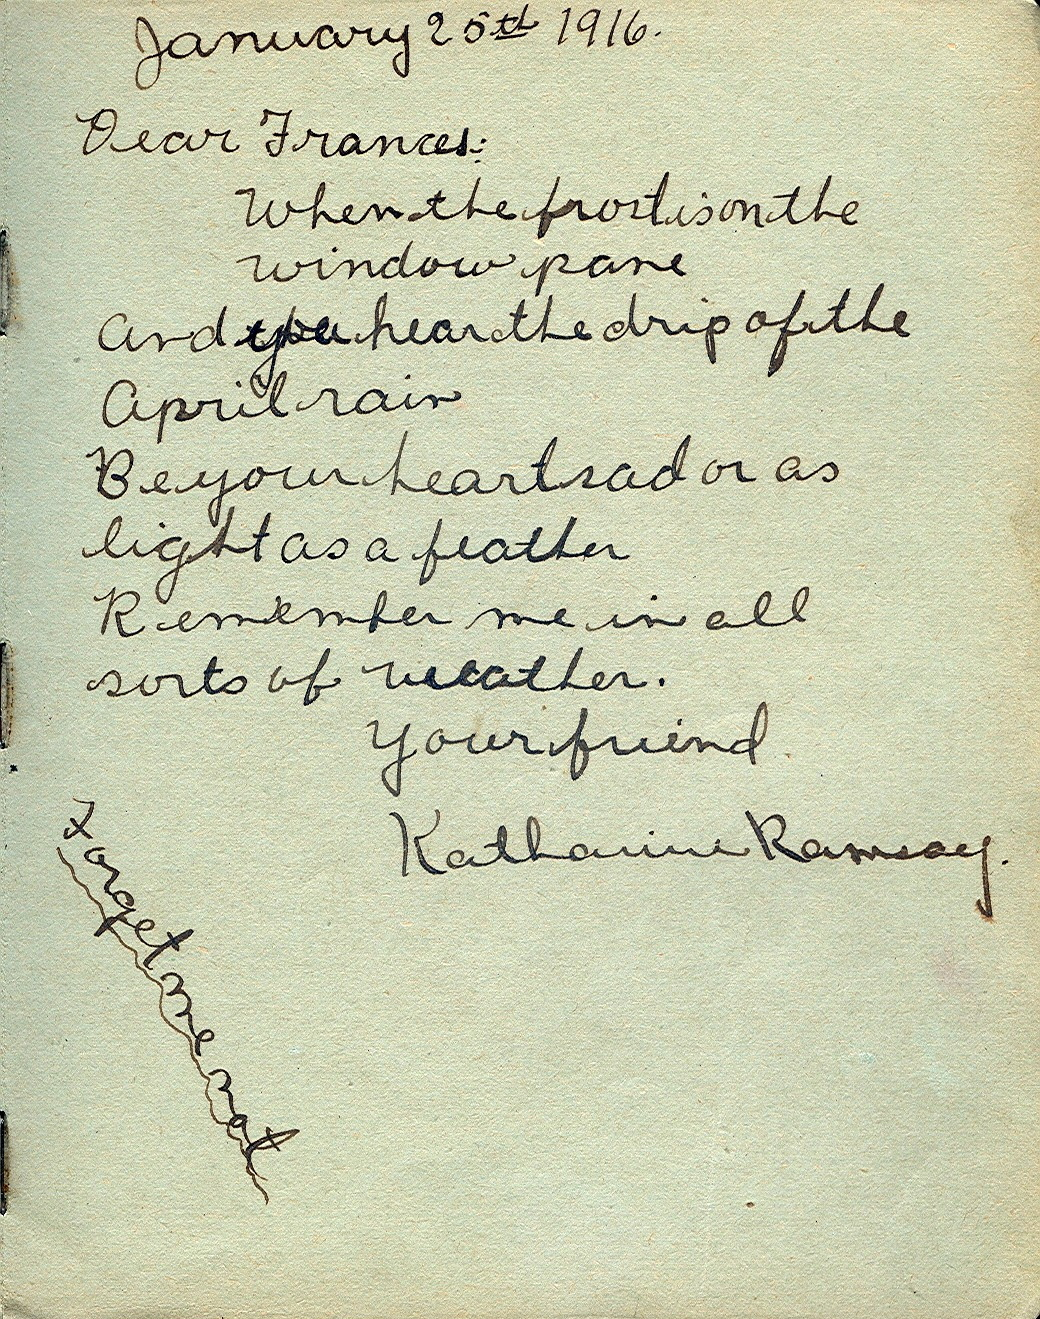 January 25th 1916.
Dear Frances:
When the frost is on the
window pane
And you hear the drip of the
April rain
Be your heart sad or as
light as a feather
Remember me in all
sorts of weather.
Your friend
Katharine Ramsay.
Forget me not